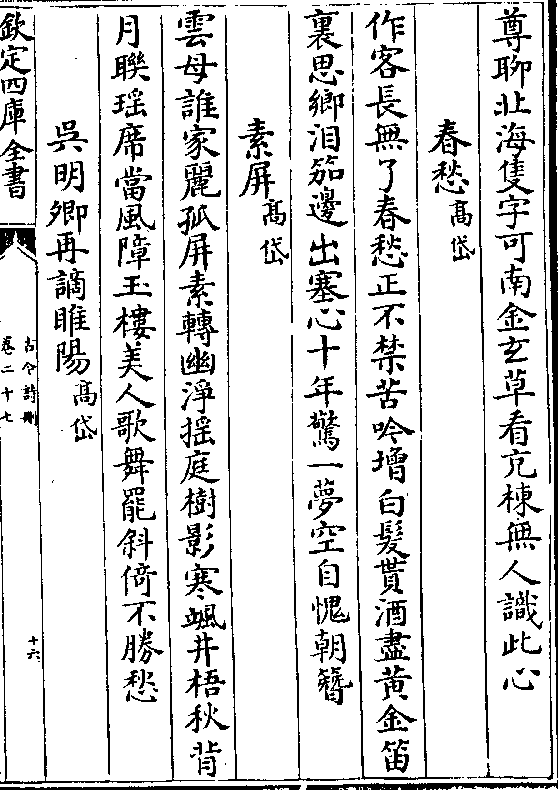 尊聊北海隻字可南金玄草看充棟無人識此心
春愁高岱
作客長無了春愁正不禁苦吟增白髮貰酒盡黄金笛
裏思鄉淚笳邊出塞心十年驚一夢空自愧朝簪
素屏高岱
雲母誰家麗孤屏素轉幽淨揺庭樹影寒颯井梧秋背
月聯瑶席當風障玉樓美人歌舞罷斜倚不勝愁
吳明卿再謫睢陽高岱
欽定四庫全書
古今詩刪
卷二十七
十六